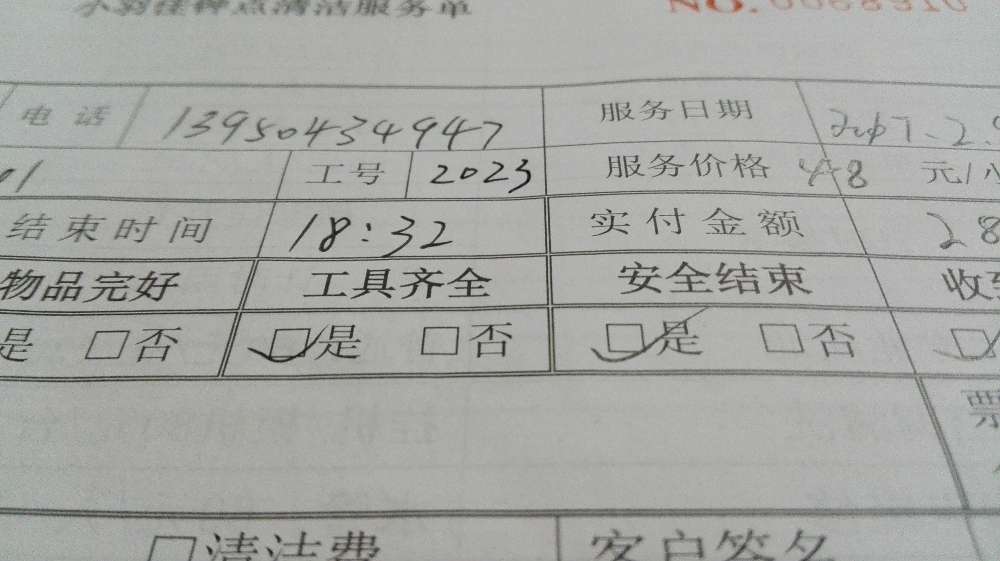 钟点清洁服务单 NO.
电话 13950434947 服务日期
01 工号 2023 服务价格 48 元/小
结束时间 18:32 实付金额 28
物品完好 工具齐全 安全结束 收到
是 □否 □是 □否 □是 □否 □
票
□清洁费 客户签名